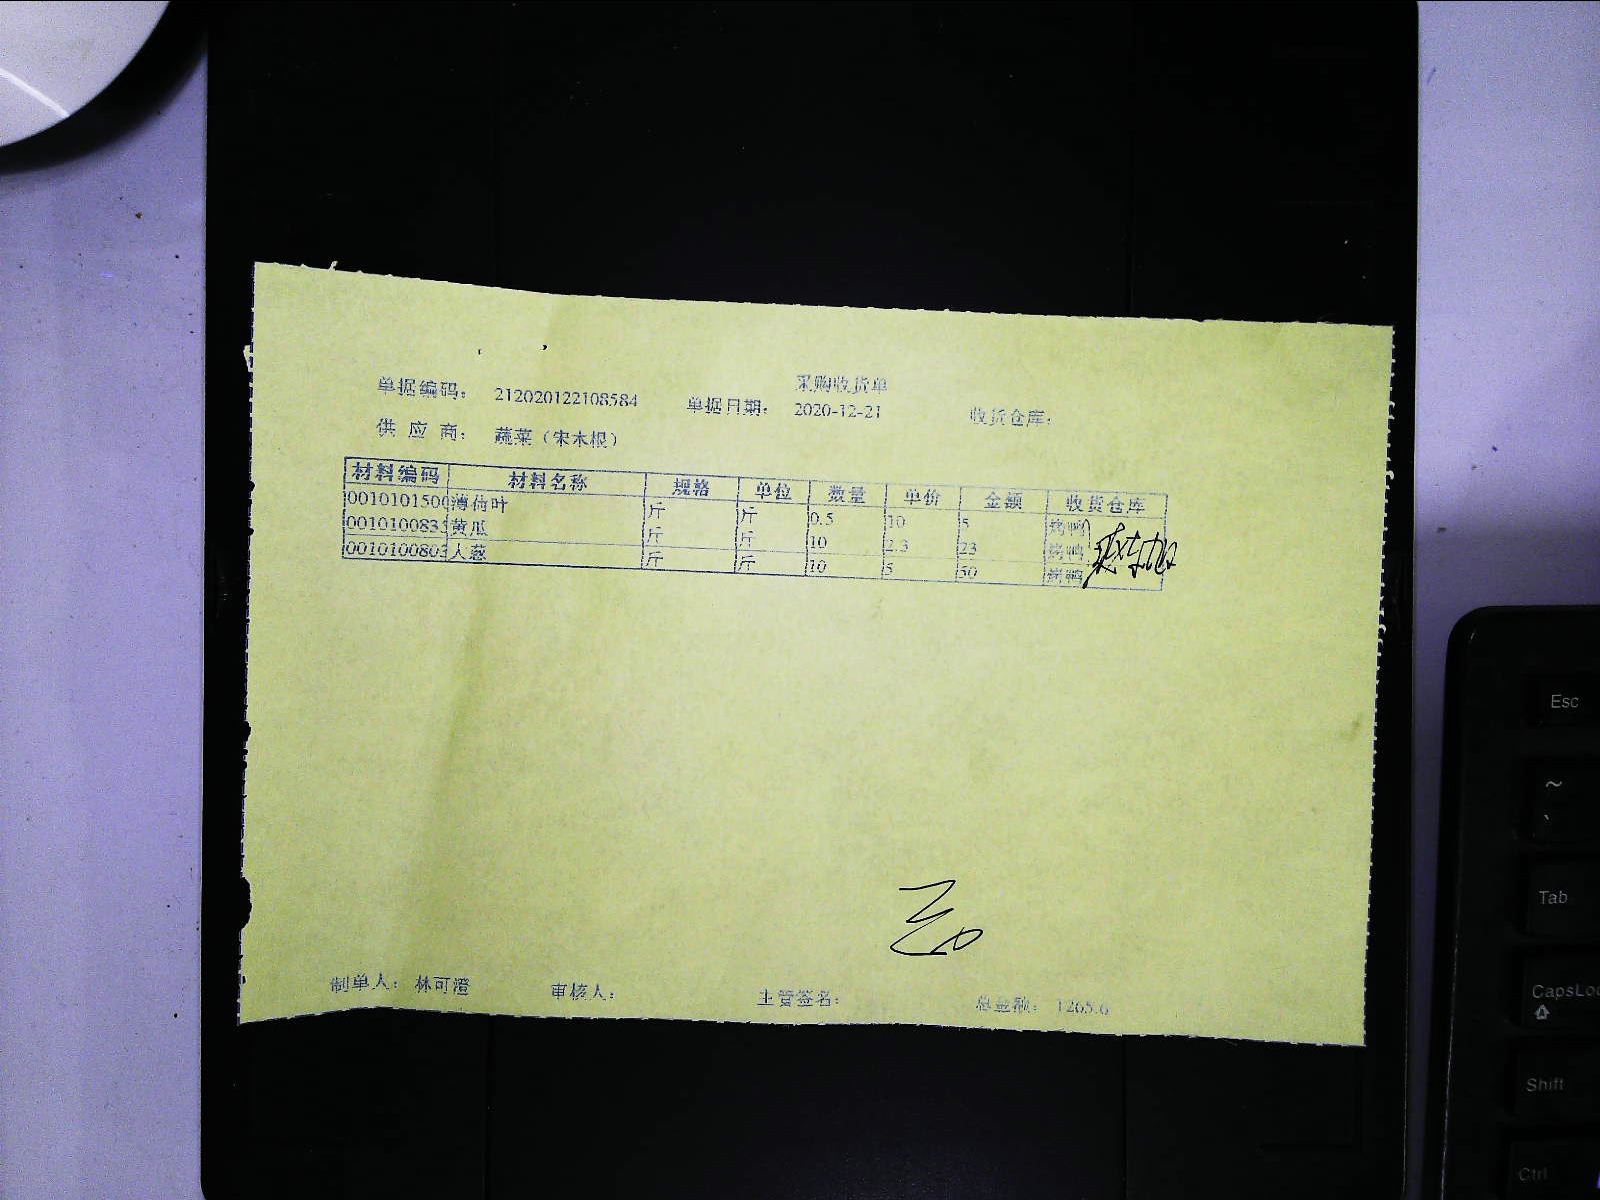 采购收货单
单据编码： 212020122108584 单据日期： 2020-12-21 收货仓库：
供 应 商： 蔬菜（宋木根）
材料编码 材料名称 规格 单位 数量 单价 金额 收货仓库
0010101500 薄荷叶 斤 斤 0.5 10 5 烤鸭
0010100835 黄瓜 斤 斤 10 2.3 23 烤鸭
0010100803 大葱 斤 斤 10 5 50 烤鸭
制单人： 林可澄 审核人： 主管签名： 总金额： 1265.6
Esc
~
Tab
CapsLoc
Shift
Ctrl